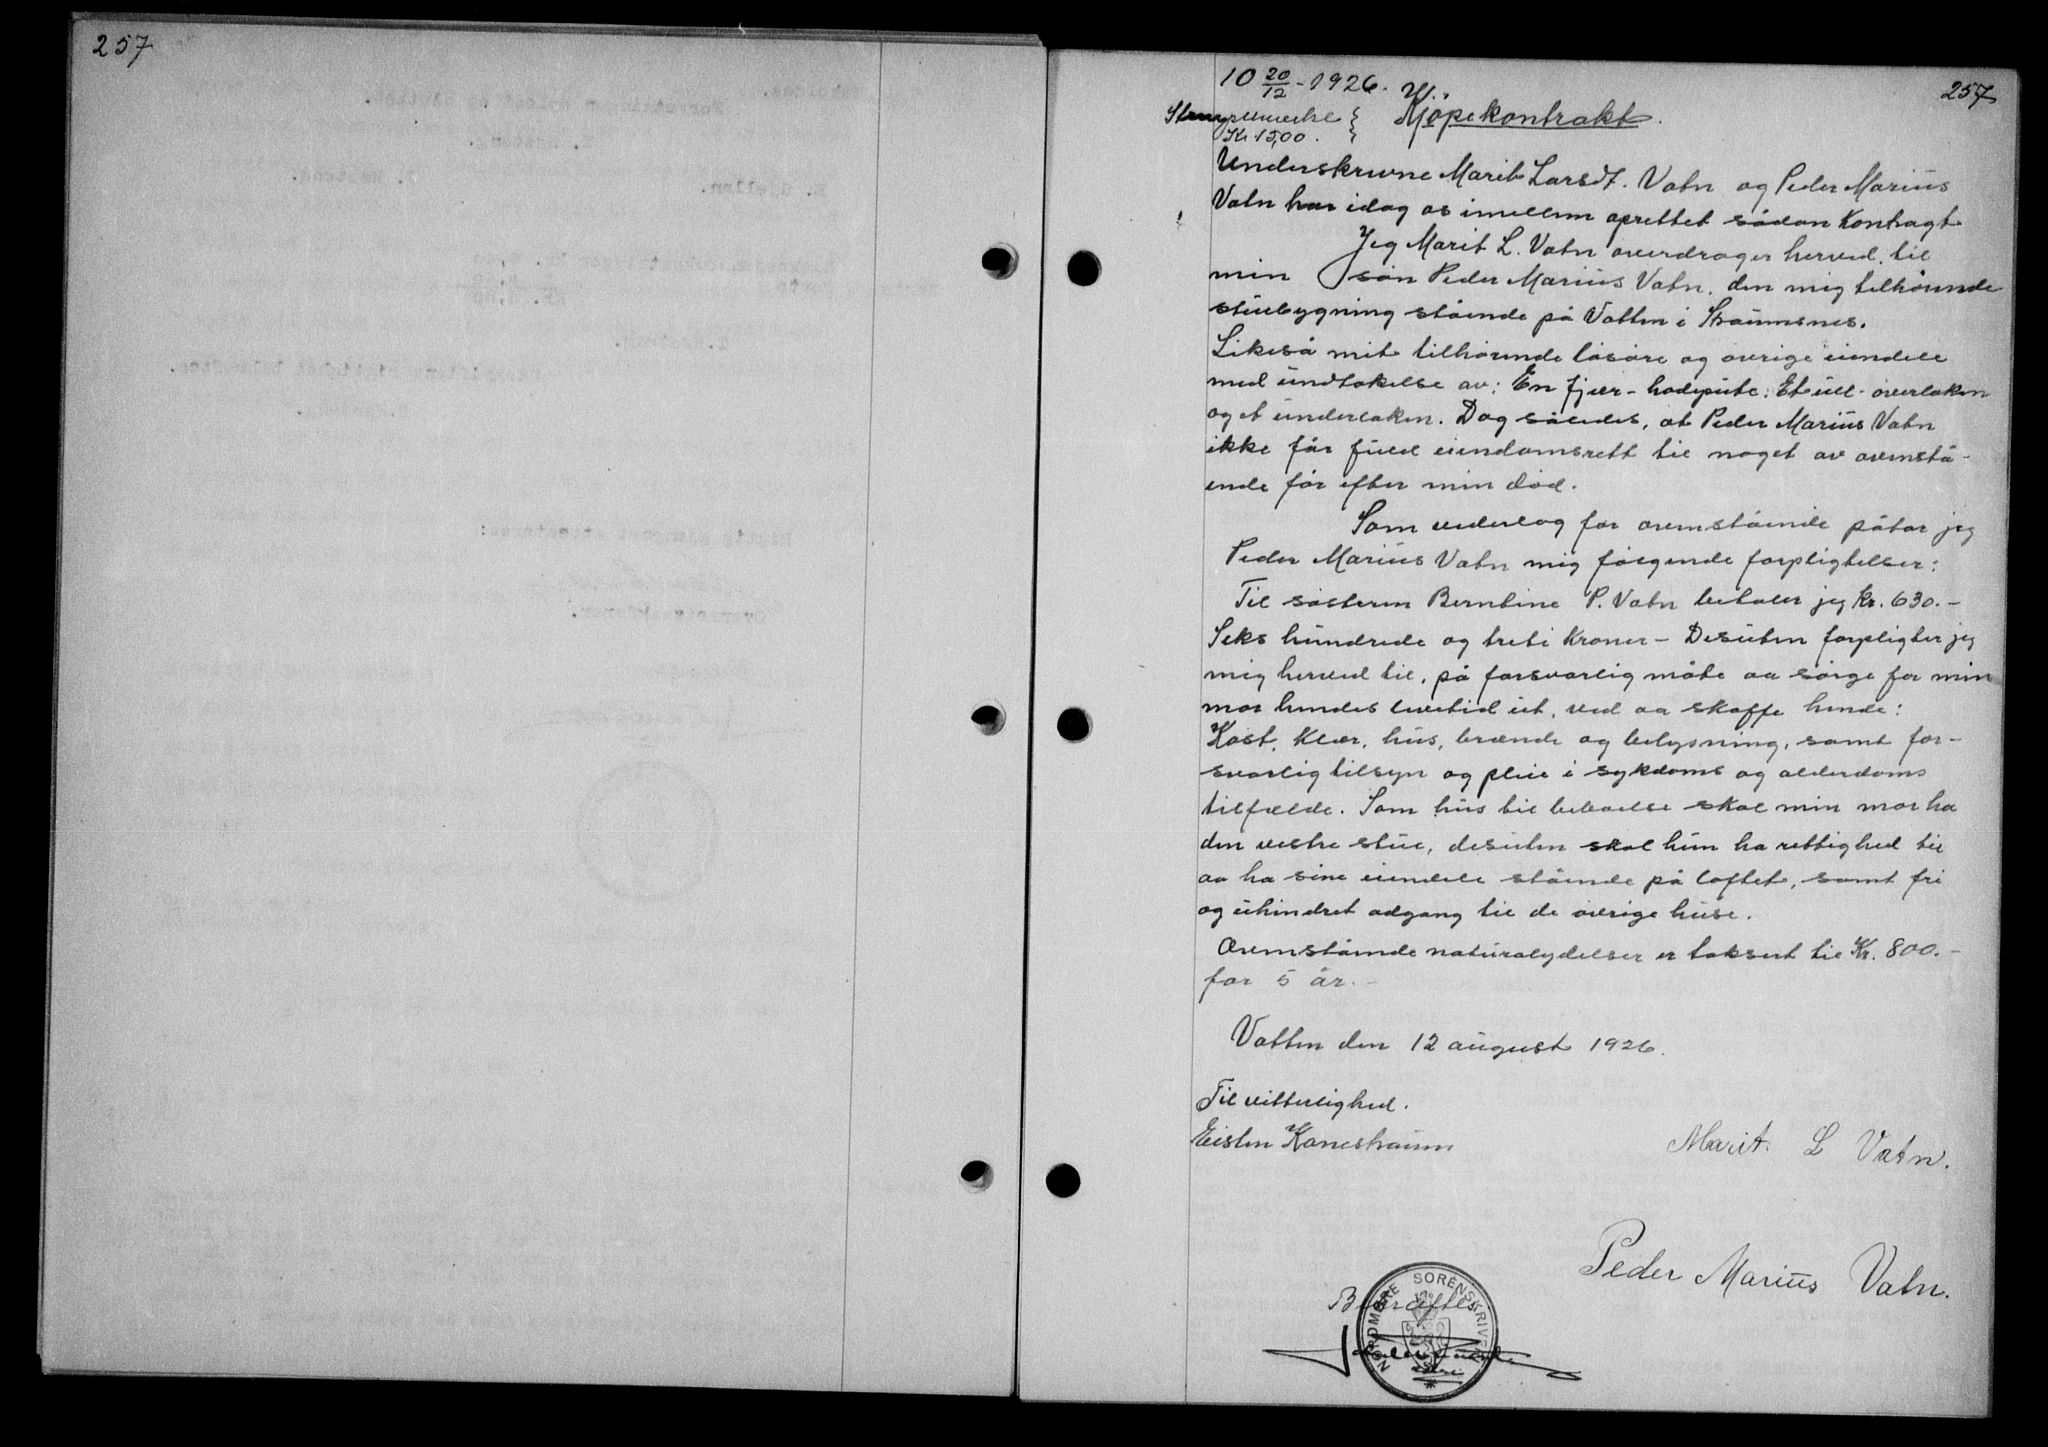 257
257
10 20/12-1926.
Stempelmerke
Kr 15,00.
Kjöpekontrakt.
Underskrevne Marit Larsdt. Vatn og Peder Marius
Vatn har idag os imellem oprettet sådan Kontragt
Jeg Marit L. Vatn overdrager herved til
min sön Peder Marius Vatn, den mig tilhörende
stuebygning stående på Vatten i Straumsnes.
Likeså mit tilhörende lösöre og övrige eiendele
med undtakelse av: En fjær-hodepute: Et ull-overlaken
og et underlaken. Dog således, at Peder Marius Vatn
ikke får fuld eiendomsrett til noget av ovenstå-
ende för efter min död.
Som vederlag for ovenstående påtar jeg
Peder Marius Vatn mig fölgende forpligtelser:
Til sösteren Berntine P. Vatn betaler jeg Kr. 630.-
Seks hundrede og treti Kroner - Desuten forpligter jeg
mig herved til, på forsvarlig måte aa sörge for min
mor hendes levetid ut, ved aa skaffe hende:
Kost, Klær, hus, brænde og belysning, samt for-
svarlig tilsyn og pleie i sykdoms og alderdoms
tilfælde. Som hus til beboelse skal min mor ha
den vestre stue, desuten skal hun ha rettighed til
aa ha sine eiendele stående på loftet, samt fri
og uhindret adgang til de övrige huse.
Ovenstående naturalydelser er taksert til Kr. 800.-
for 5 år.-
Vatten den 12 august 1926.
Til vitterlighed.
Eisten Kanestraum
Marit. L Vatn.
Peder Marius Vatn.
Bekræftes
NORDMØRE SORENSKRIVERI